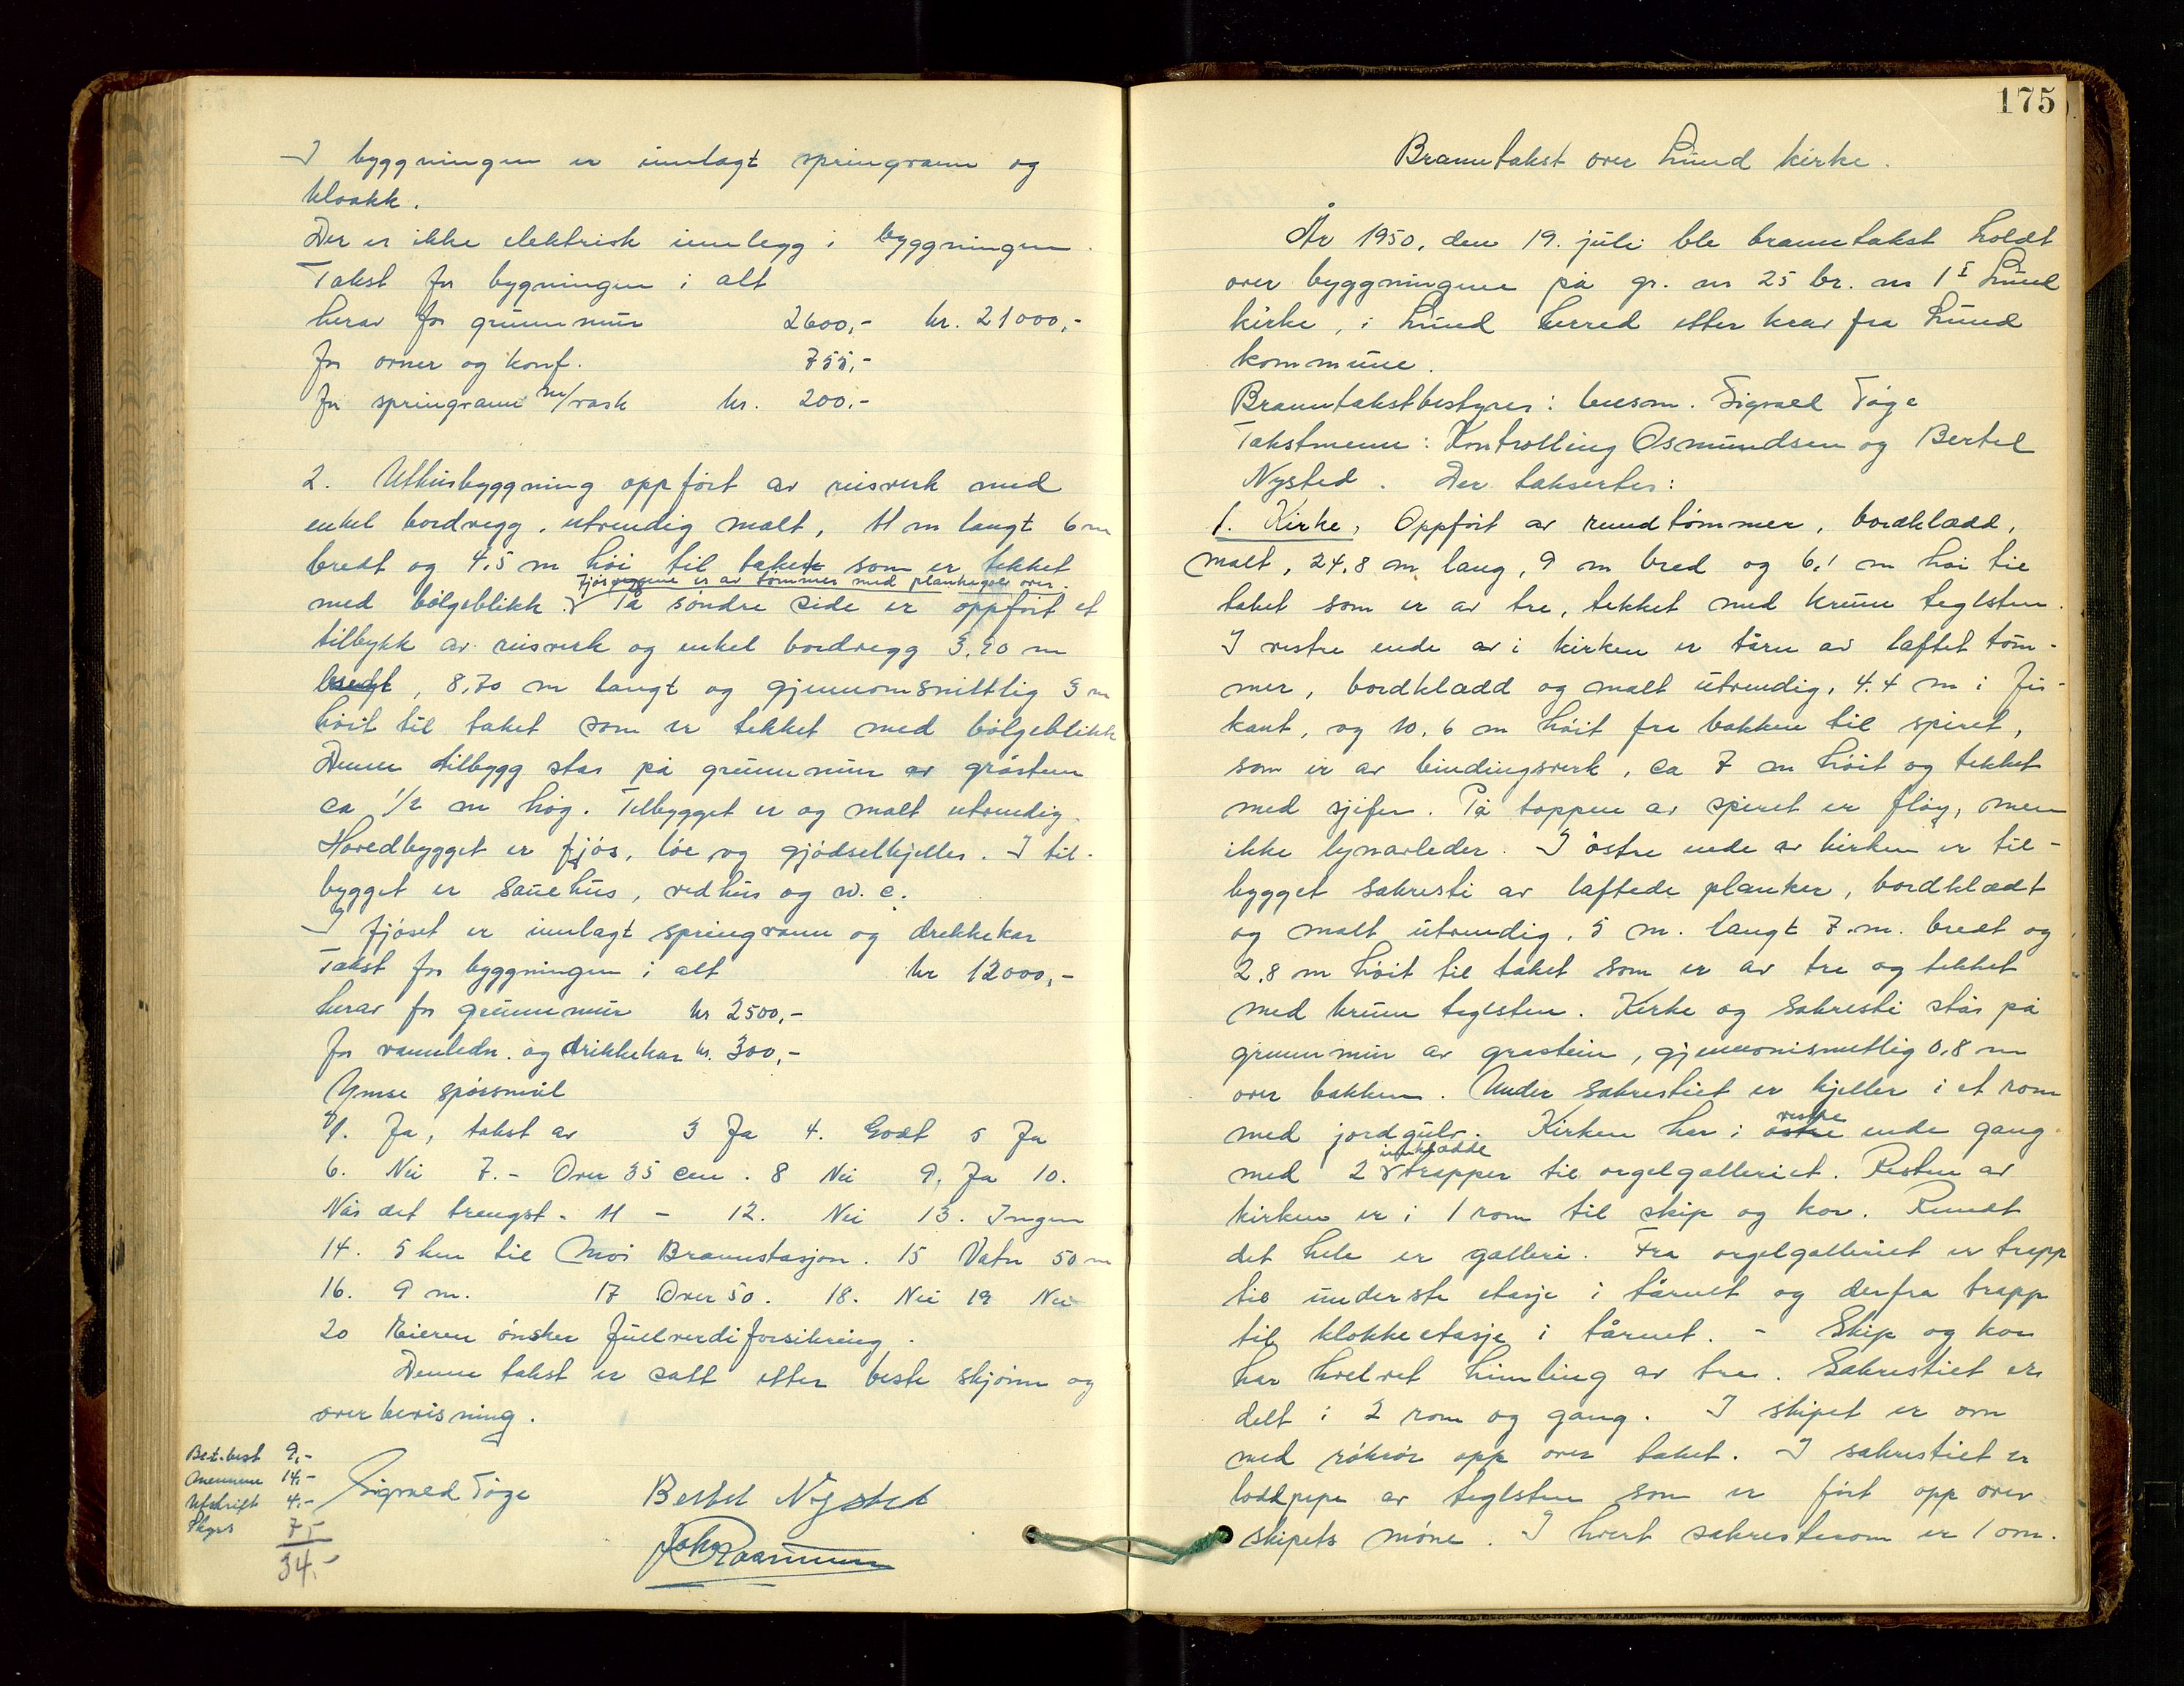 I byggningen er innlagt springvann og
kloakk.
Der er ikke elektrisk innlegg i byggningen.
Takst for bygningen i alt
herav for grunnmur 2600,- kr. 21000,-
for ovner og komf. 755,-
for springvann m/vask kr. 200.-
2. Uthusbyggning oppført av reisverk med
enkel bordvegg, utvendig malt, 11 m langt 6 m
bredt og 4,5 m høi til taket som er tekket
Fjøsveggene er av tømmer med plankegolv over.
med bølgeblikk. På søndre side er oppført et
tilbykk av reisverk og enkel bordvegg 3,90 m
bredt, 8,70 m langt og gjennomsnittlig 3 m
høit til taket som er tekket med bølgeblikk
Denne tilbygg står på grunnmur av gråsten
ca 1/2 m høg. Tilbygget er og malt utvendig.
Hovedbygget er fjøs, løe, og gjødselkjeller. I til-
bygget er sauehus, vedhus og w.c.
I fjøset er innlagt springvann og drekkekar
Takst for byggningen i alt kr 12000,-
herav for grunnmur kr 2500,-
for vannledn. og drikkekar kr. 300,-
Ymse spørsmål
1. Ja, takst av 3 Ja 4. Godt 5 Ja
6. Nei 7. - Over 35 cm. 8 Nei 9. Ja 10.
Når det trengst. 11 - 12. Nei 13. Ingen
14. 5 km til Moi Brannstasjon. 15 Vatn 50 m
16. 9 m. 17 Over 50. 18. Nei 19 Nei
20 Eieren ønsker fullverdiforsikring.
Denne takst er satt etter beste skjønn og
overbevisning.
Be.t.best 9,-
14,-
Utskrift 4,-
Skyss 7,-
34,-
Sigvald Tøge Bertel Nysted
175
Branntakst over Lund kirke.
År 1950, den 19. juli ble branntakst holdt
over byggningene på gr. nr 25 br. nr 1 I Lund
kirke, i Lund herred etter krav fra Lund
kommune.
Branntakstbestyrer: lensm. Sigvald Tøge
Takstmenn: Kontrolling Osmundsen og Bertel
Nysted. Der taksertes:
1. Kirke, Oppført av rundtømmer, bordklædd,
malt, 24,8 m lang, 9 m bred og 6,1 m høi til
taket som er av tre, tekket med krum teglsten.
I vestre ende av i kirken er tårn av laftet tøm-
mer, bordklædd og malt utvendig, 4.4 m i fir-
kant, og 10,6 m høit fra bakken til spiret,
som er av bindingsverk, ca 7 m høit og tekket
med sjifer. På toppen av spiret er fløy, men
ikke lynavleder. I østre ende av kirken er til-
bygget sakresti av laftede planker, bordklædt
og malt utvendig, 5 m. langt 7 m. bredt og
2,8 m høit til taket som er av tre og tekket
med krum teglsten. Kirke og sakresti står på
grunnmur av grastein, gjennomsnittlig 0,8 m
over bakken. Under sakrestiet er kjeller i et rom
med jordgulv. Kirken har i østre vestre ende gang
med 2 innklædde trapper til orgelgalleriet. Resten av
kirken er i 1 rom til skip og kor. Rundt
det hele er galleri. Fra orgelgalleriet er trapp
til underste etasje i tårnet og derfra trapp
til klokkeetasje i tårnet. - Skip og kor
har hvelvet himling av tre. Sakrestiet er
delt i 2 rom og gang. I skipet er ovn
med røkrør opp over taket. I sakrestiet er
loddpipe av teglsten som er ført opp over
skipets møne. I hvert sakresterom er 1 ovn.